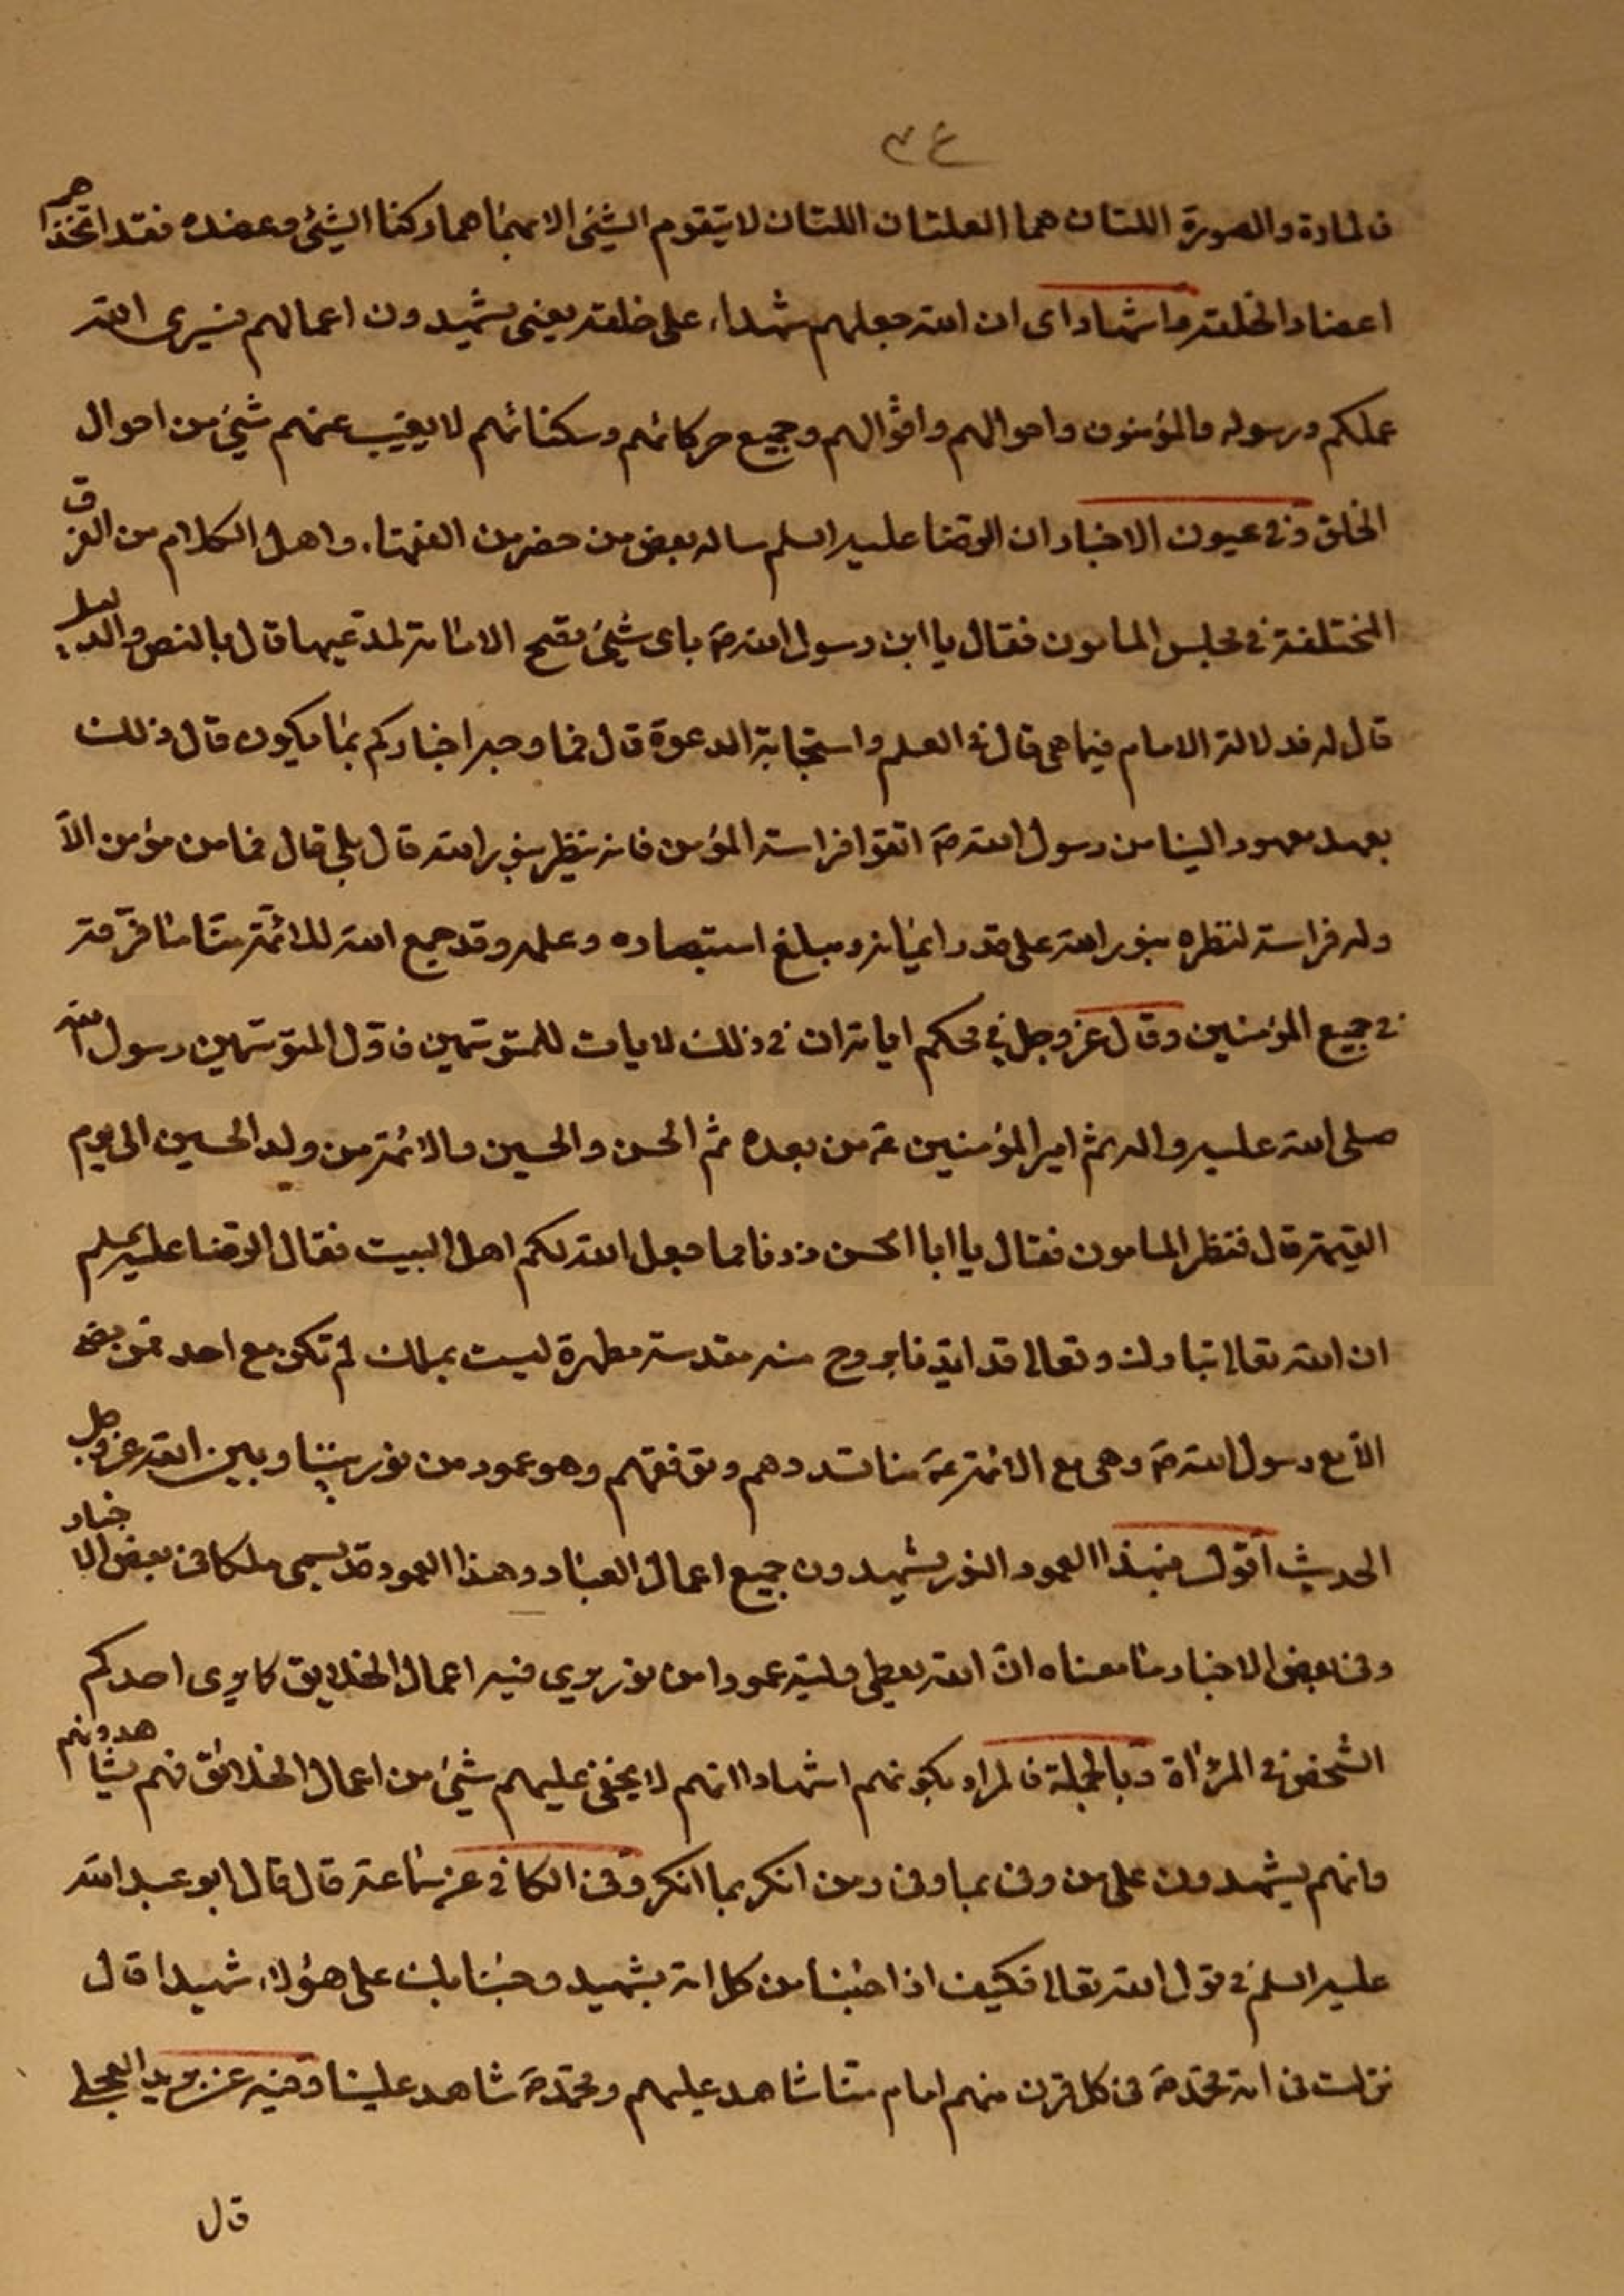 ٣٤
فالمادة والصورة اللتان هما العلتان اللتان لا يتقوم الشيئ الا بهما هما ركنا الشيئ وعضده فقد اتخذهم
اعضادا لخلقه واشهادا اى ان الله جعلهم شهداء على خلقه يعنى يشهدون اعمالهم فسيرى الله
عملكم ورسوله والمؤمنون واحوالهم واقوالهم وجميع حركاتهم وسكناتهم لا يغيب عنهم شيئ من احوال
الخلق وفى عيون الاخبار ان الرضا عليه السلم ساله بعض من حضر من الفقهاء واهل الكلام من الفرق
المختلفة فى مجلس المامون فقال يا ابن رسول الله ص باى شيئ تصح الامامة لمدعيها قال بالنص والدليل
قال له فدلالة الامام فيما هى قال فى العلم واستجابة الدعوة قال فما وجه اخباركم بما يكون قال ذلك
بعهد معهود الينا من رسول الله ص اتقوا فراسة المؤمن فانه ينظر بنور الله قال بلى قال فما من مؤمن الا
وله فراسة لنظره بنور الله على قدر ايمانه ومبلغ استبصاره وعلمه وقد جمع الله للائمة منا ما فرقه
فى جميع المؤمنين وقال عز وجل فى محكم اياته ان فى ذلك لايات للمتوسمين فاول المتوسمين رسول الله
صلى الله عليه واله ثم امير المؤمنين ع من بعده ثم الحسن والحسين والائمة من ولد الحسين الى يوم
القيمة قال فنظر المامون فقال يا ابا الحسن زدنا مما جعل الله لكم اهل البيت فقال الرضا عليه السلم
ان الله تعالى تبارك وتعالى قد ايدنا بروح منه مقدسة مطهرة ليست بملك لم تكن مع احد ممن مضى
الا مع رسول الله ص وهى مع الائمة ع منا تسددهم وتوفقهم وهو عمود من نور بيننا وبين الله عز وجل
الحديث اقول فبهذا العمود النور يشهدون جميع اعمال العباد وهذا العمود قد يسمى ملكا فى بعض الاخبار
وفى بعض الاخبار ما معناه ان الله يعطى وليه عمودا من نور يرى فيه اعمال الخلايق كما يرى احدكم
الشخص فى المرءاة وبالجملة فالمراد بكونهم اشهادا انهم لا يخفى عليهم شيئ من اعمال الخلائق فهم يشاهدونهم
وانهم يشهدون على من وفى بما وفى ومن انكر بما انكر وفى الكافى عن سماعة قال قال ابو عبد الله
عليه السلم فى قول الله تعالى فكيف اذا جئنا من كل امة بشهيد وجئنا بك على هؤلاء شهيدا قال
نزلت فى امة محمد ص فى كل قرن منهم امام منا شاهد عليهم ومحمد ص شاهد علينا وفيه عن بريد العجلى
قال